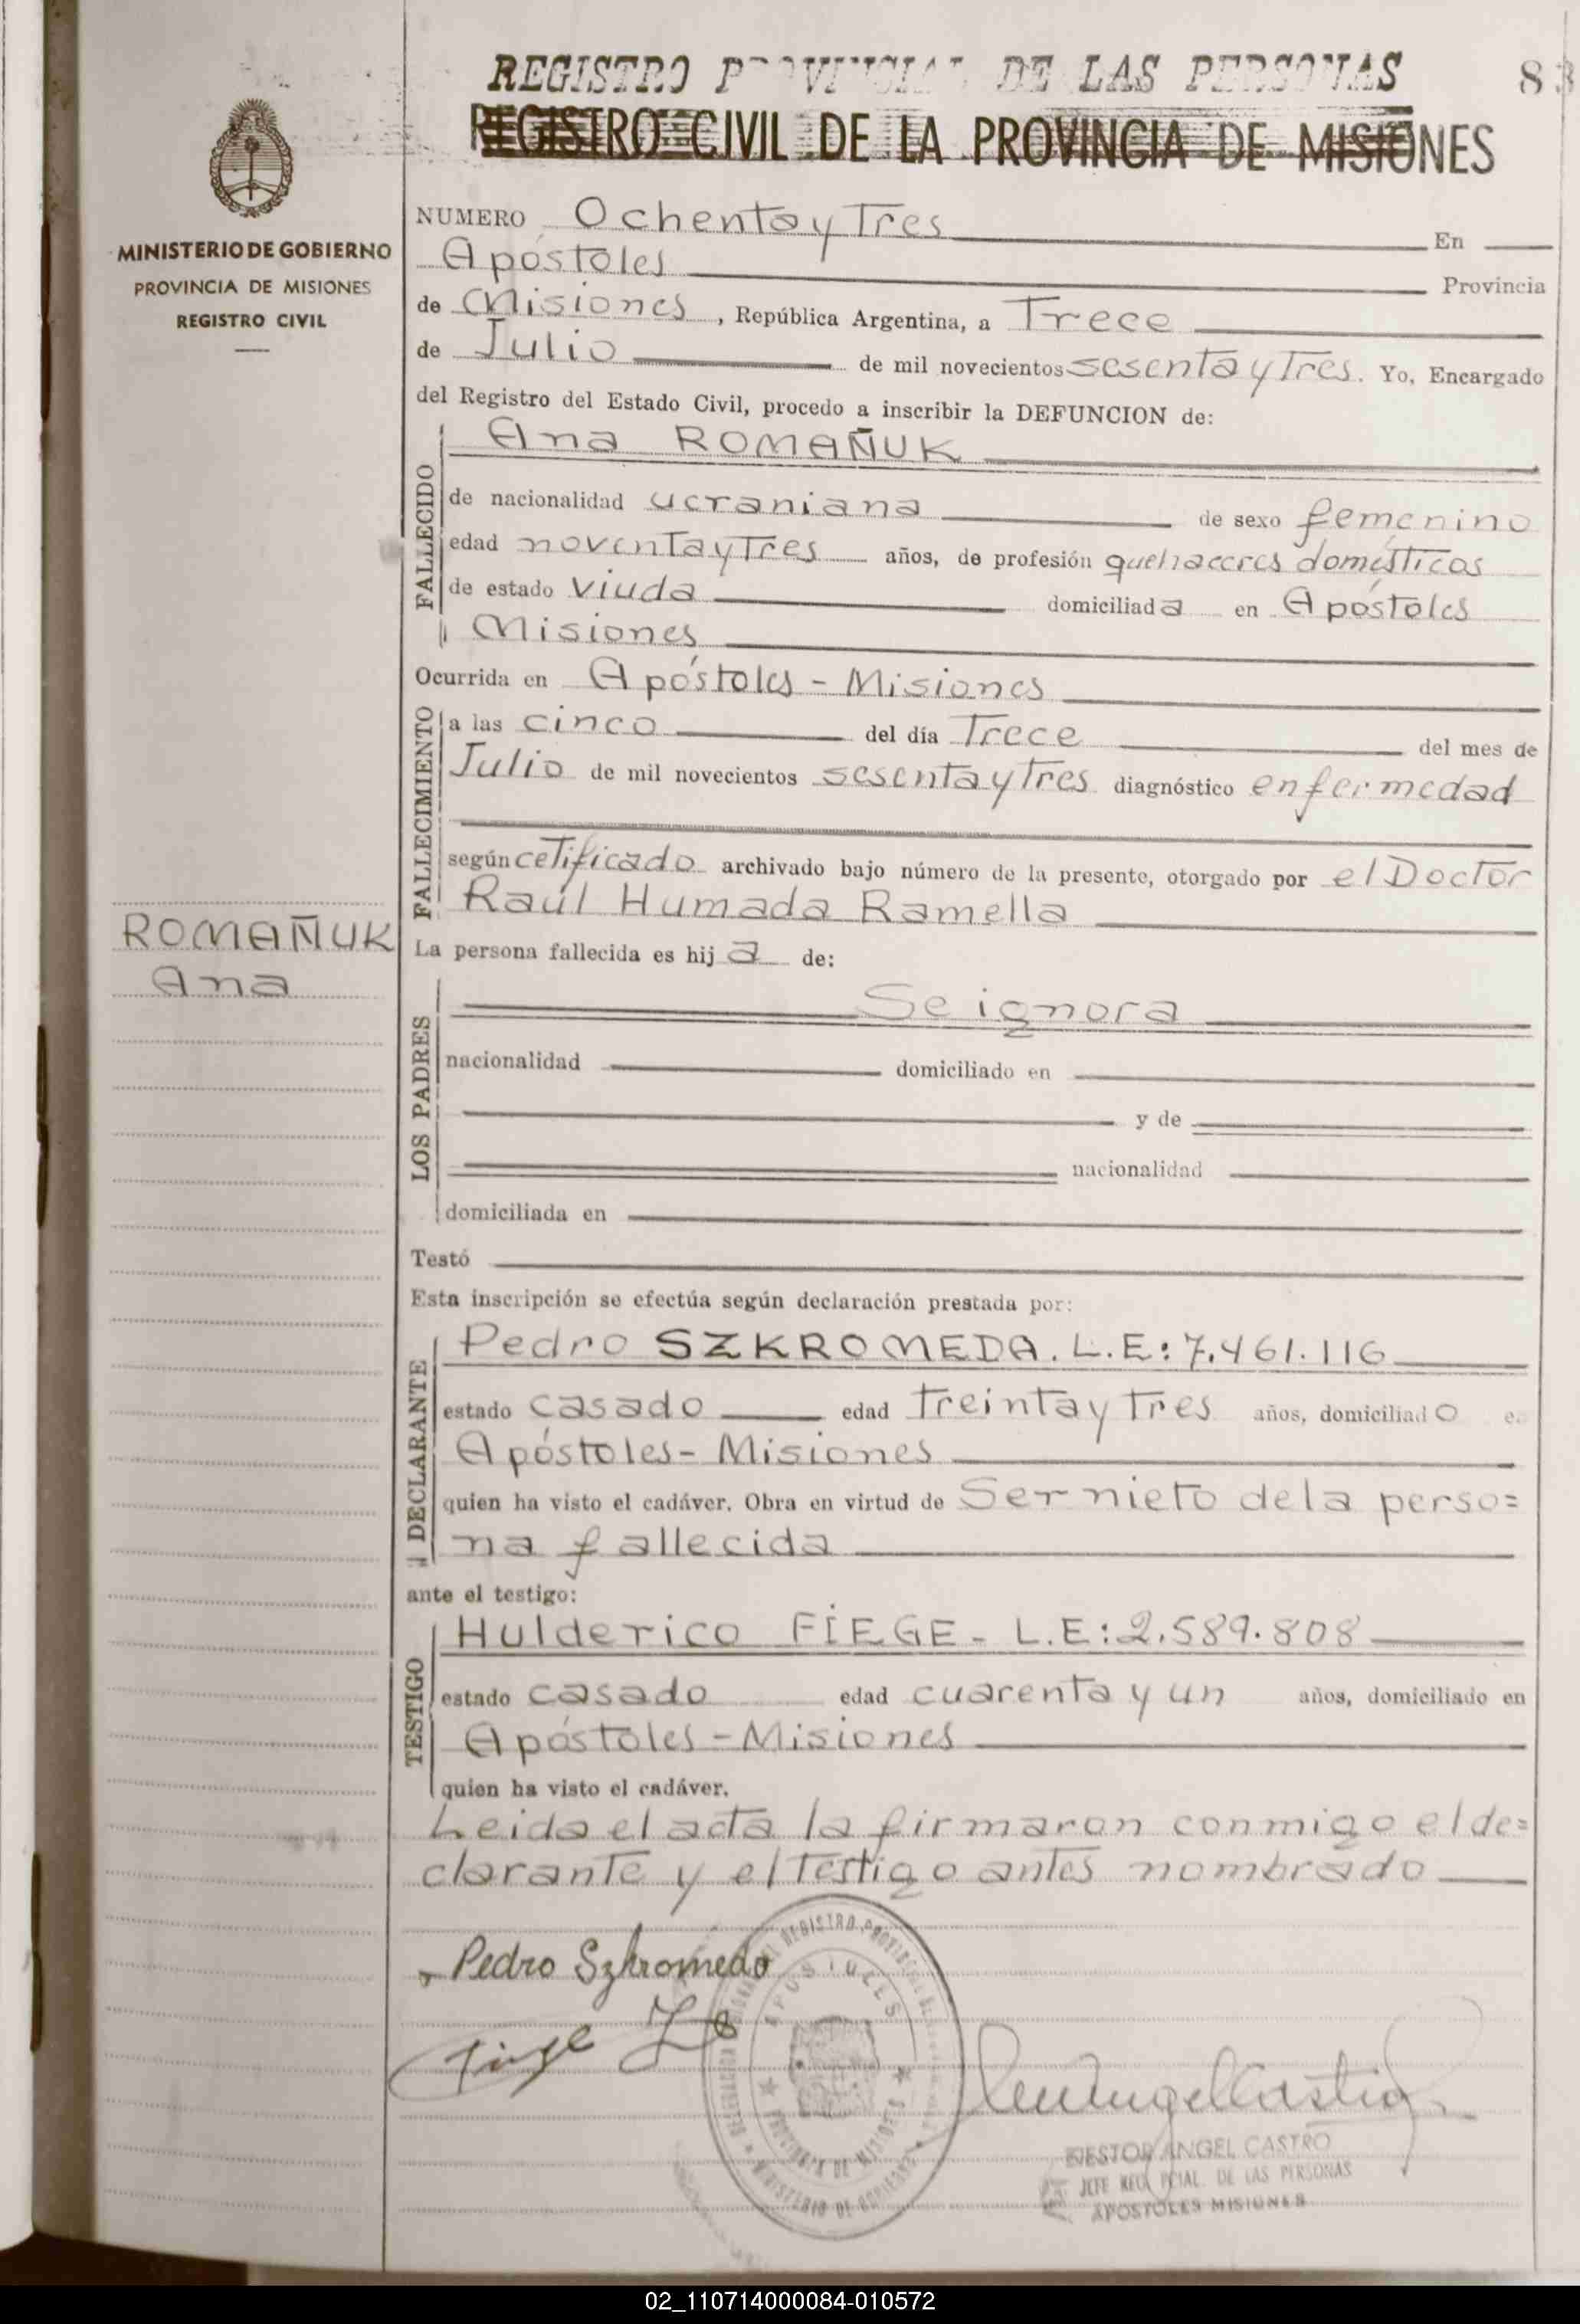 REGISTRO PROVINCIAL DE LAS PERSONAS
83
REGISTRO CIVIL DE LA PROVINCIA DE MISIONES
MINISTERIO DE GOBIERNO
PROVINCIA DE MISIONES
REGISTRO CIVIL
NUMERO Ochenta y Tres En
Apóstoles Provincia
de Misiones, República Argentina, a Trece
de Julio de mil novecientos sesenta y Tres. Yo, Encargado
del Registro del Estado Civil, procedo a inscribir la DEFUNCION de:
FALLECIDO
Ana ROMAÑUK
de nacionalidad ucraniana de sexo femenino
edad noventa y Tres años, de profesión quehaceres domésticos
de estado viuda domiciliada en Apóstoles
Misiones
Ocurrida en Apóstoles - Misiones
FALLECIMIENTO
a las cinco del día Trece del mes de
Julio de mil novecientos sesenta y Tres diagnóstico enfermedad
según cetificado archivado bajo número de la presente, otorgado por el Doctor
Raúl Humada Ramella
ROMAÑUK
Ana
La persona fallecida es hija de:
LOS PADRES
Se ignora
nacionalidad domiciliado en
y de
nacionalidad
domiciliada en
Testó
Esta inscripción se efectúa según declaración prestada por:
DECLARANTE
Pedro SZKROMEDA. L.E: 7.461.116
estado casado edad treinta y Tres años, domiciliado e
Apóstoles - Misiones
quien ha visto el cadáver. Obra en virtud de Ser nieto de la perso=
na fallecida
ante el testigo:
TESTIGO
Hulderico FIEGE - L.E: 2.589.808
estado casado edad cuarenta y un años, domiciliado en
Apóstoles - Misiones
quien ha visto el cadáver.
Leida el acta la firmaron conmigo el de=
clarante y el Testigo antes nombrado
Pedro Szkromeda
APOSTOLES
PROVINCIA DE MISIONES
MINISTERIO DE GOBIERNO
NESTOR ANGEL CASTRO
JEFE REG. PCIAL. DE LAS PERSONAS
APOSTOLES MISIONES
02_110714000084-010572